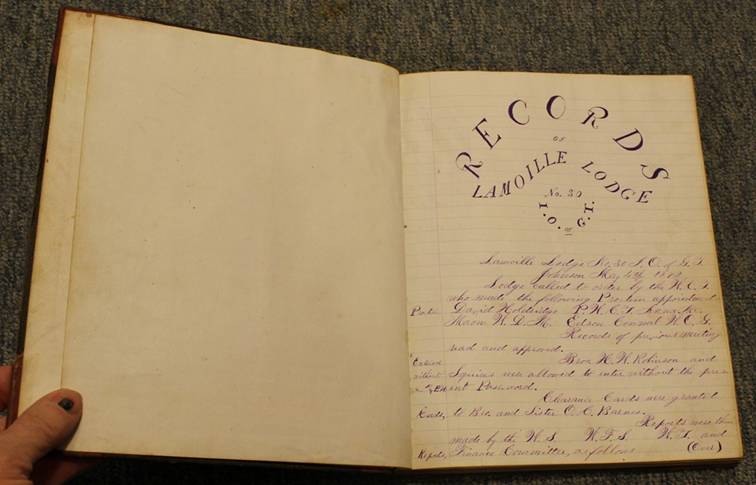 RECORDS
OF
LAMOILLE LODGE
No. 30
I. O. of G. T.
Lamoille Lodge No. 30 I. O. of G. T.
Johnson May 4th
Lodge called to order by the W. C. T.
who made the following Protem appointments
David Holdridge P. W. C. T.
W. D. M. Edson Connal W. C. G.
Records of previous meeting
read and approved.
Bros. W. W. Robinson and
Squires were allowed to enter without the pres-
ent Password.
Clearance Cards were granted
Cards, to Bro. and Sister O. C. Barnes.
Reports were then
made by the W. S. W. F. S. W. T. and
Reports, Finance Committee, as follows (Over)